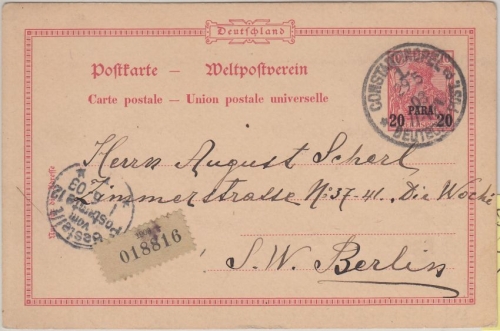 Deutschland
Postkarte — Weltpostverein
Carte postale — Union postale universelle
CONSTANTINOPEL
PARA
20 20
Herrn August Scherl
Zimmerstrasse No 37-41. Die Woche
Bestellt
vom
Postamte 12
03
018816
S. W. Berlin